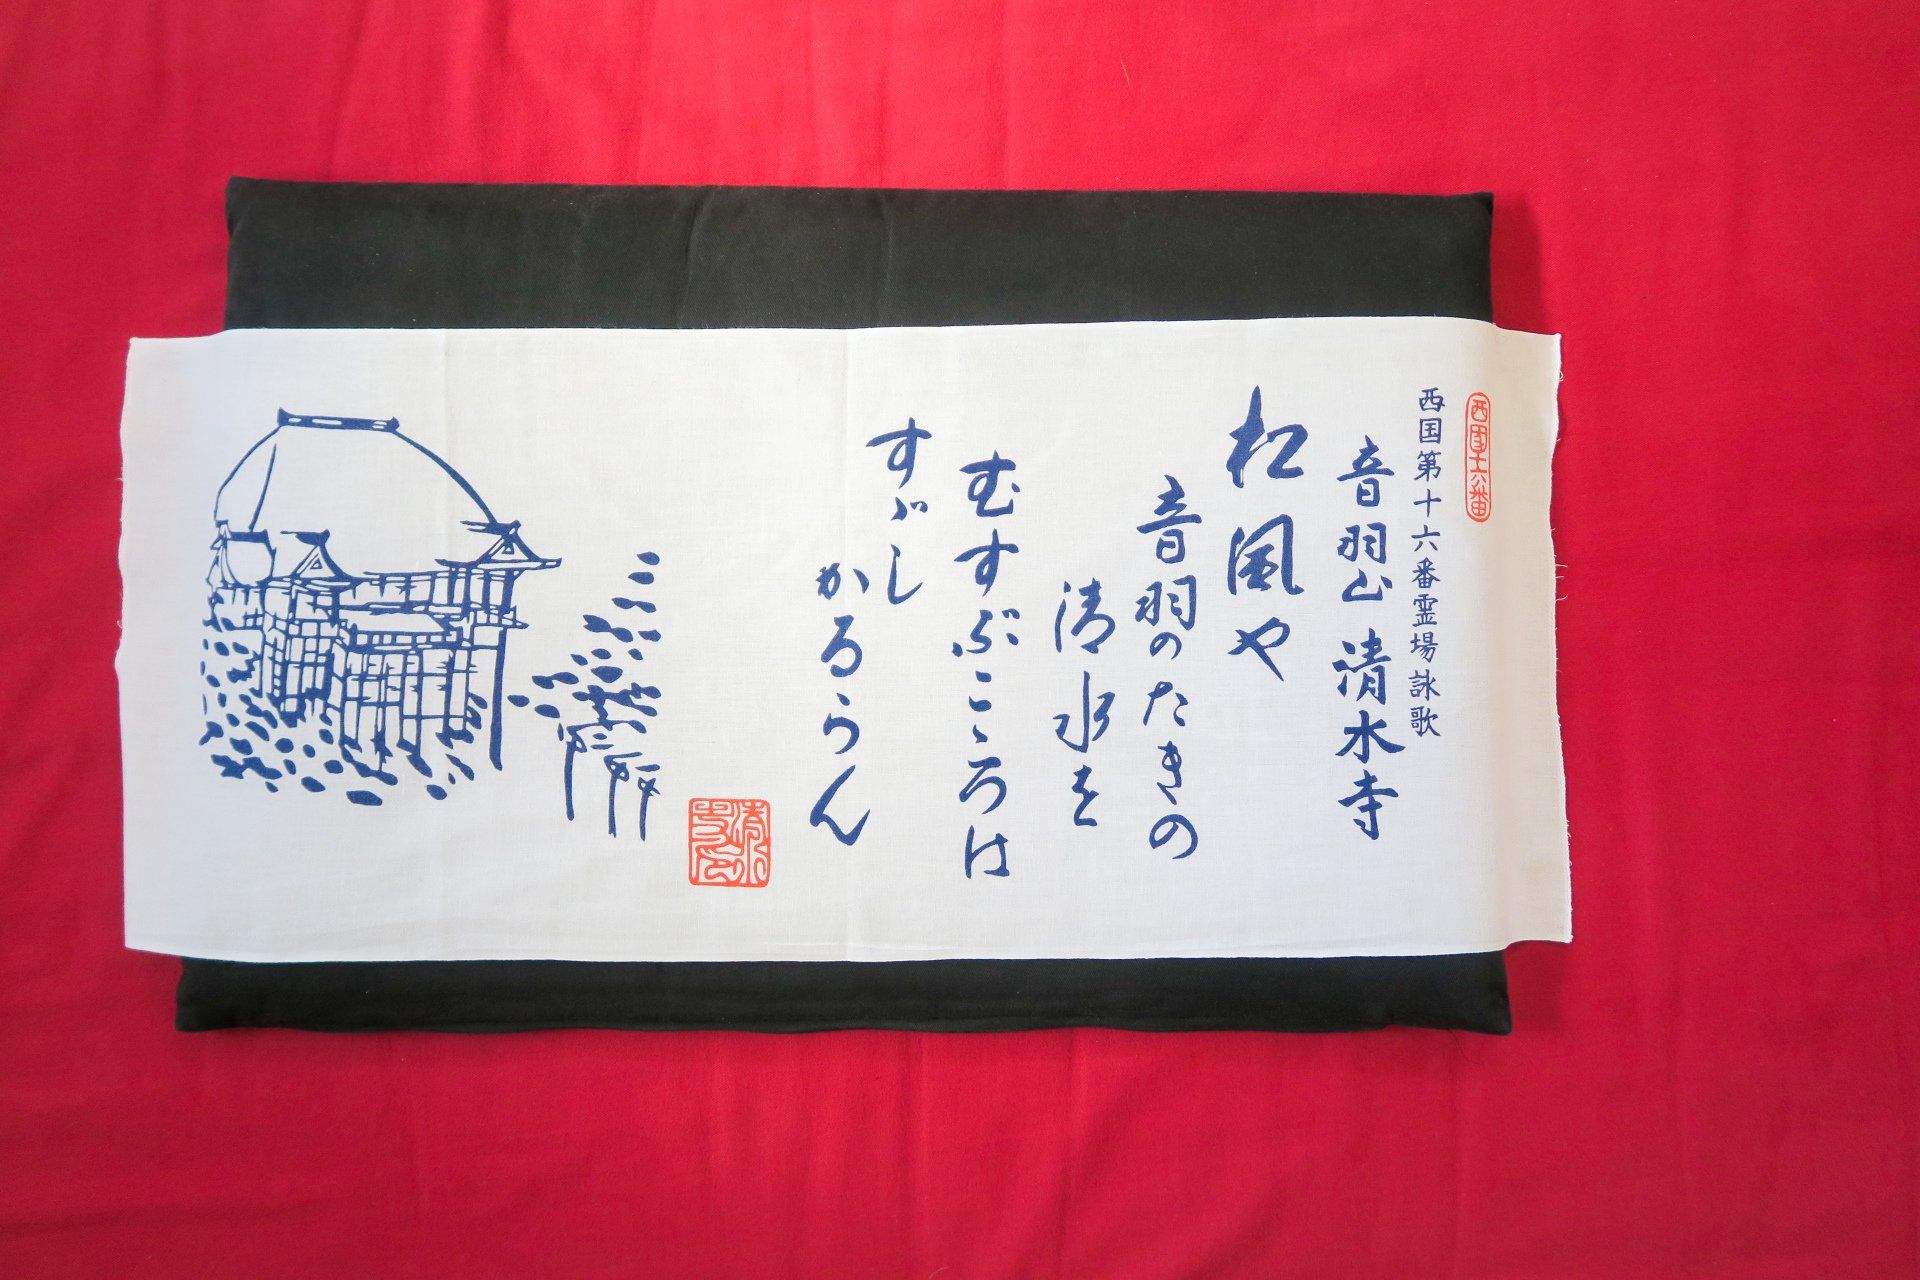 西国十六番
西国第十六番霊場詠歌
音羽山 清水寺
松風や
音羽のたきの
清水を
むすぶこゝろは
すゞし
かるらん